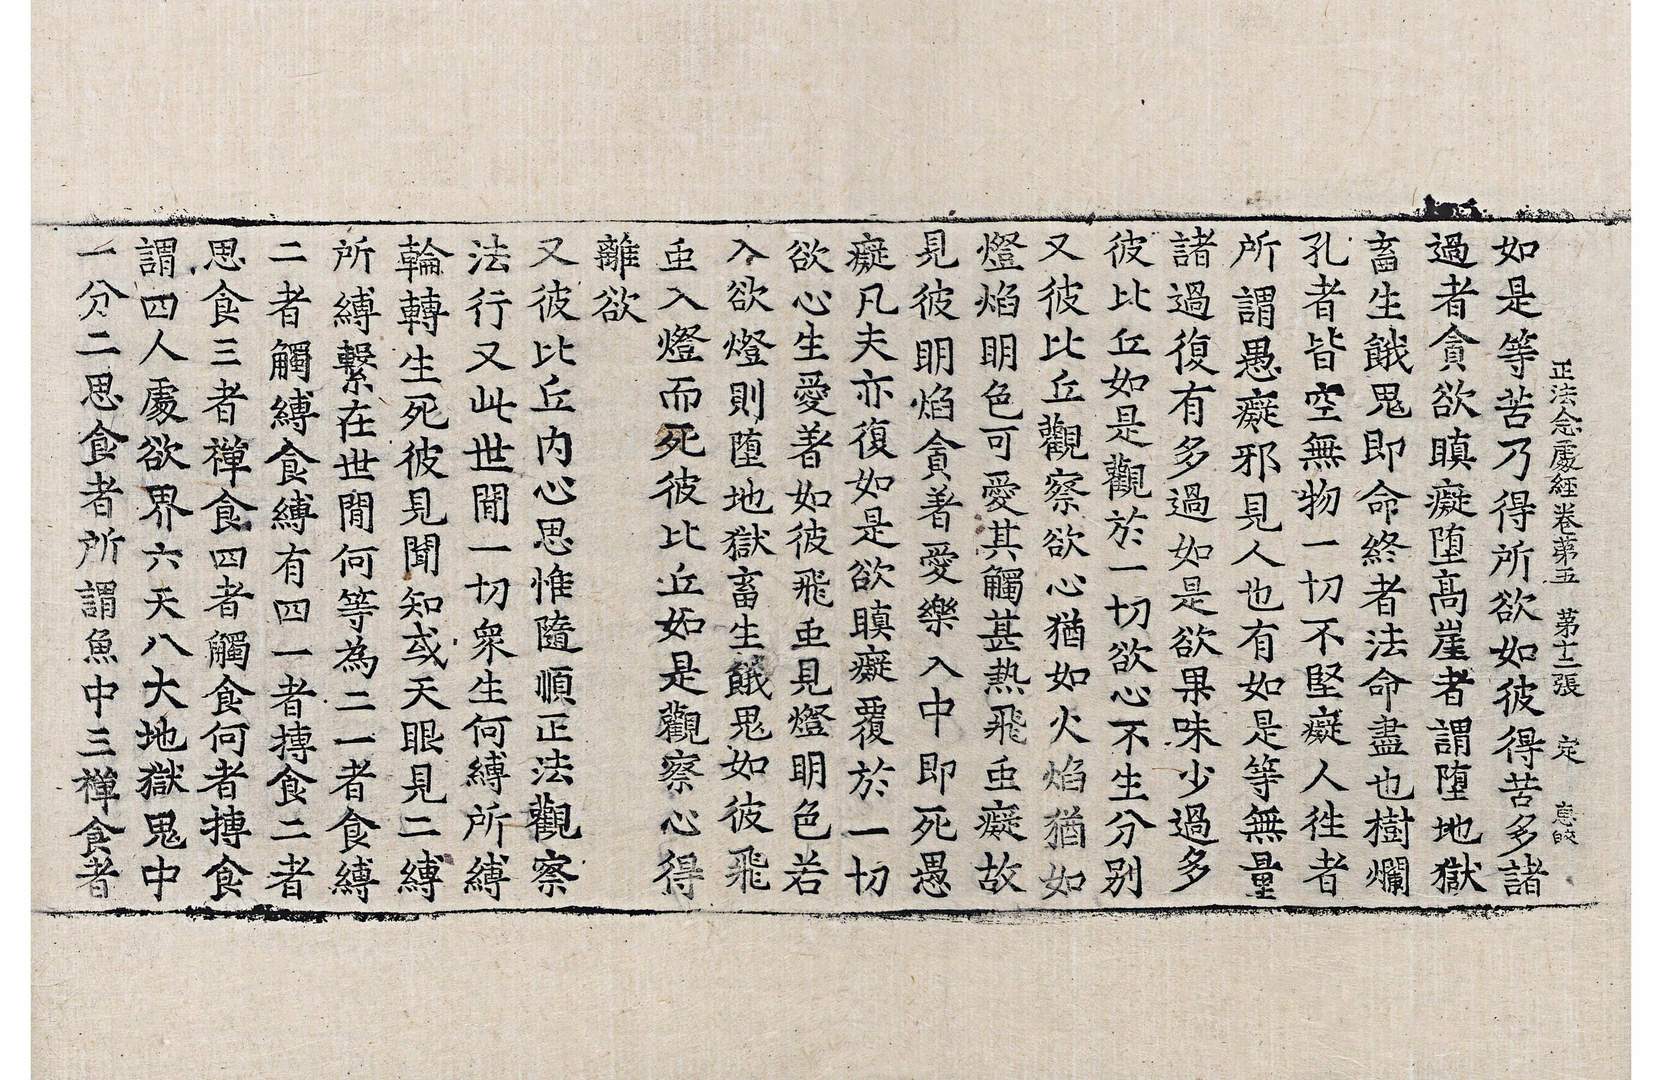 正法念處經卷第五 第十二張 定
如是等苦乃得所欲如彼得苦多諸
過者貪欲瞋癡墮高崖者謂墮地獄
畜生餓鬼即命終者法命盡也樹爛
孔者皆空無物一切不堅癡人徃者
所謂愚癡邪見人也有如是等無量
諸過復有多過如是欲果味少過多
彼比丘如是觀於一切欲心不生分别
又彼比丘觀察欲心猶如火焰猶如
燈焰明色可愛其觸甚熱飛虫癡故
見彼明焰貪著愛樂入中即死愚
癡凡夫亦復如是欲瞋癡覆於一切
欲心生愛著如彼飛虫見燈明色若
入欲燈則墮地獄畜生餓鬼如彼飛
虫入燈而死彼比丘如是觀察心得
離欲
又彼比丘内心思惟隨順正法觀察
法行又此世間一切衆生何縛所縛
輪轉生死彼見聞知或天眼見二縛
所縛繫在世間何等為二一者食縛
二者觸縛食縛有四一者摶食二者
思食三者禪食四者觸食何者摶食
謂四人處欲界六天八大地獄鬼中
一分二思食者所謂魚中三禪食者